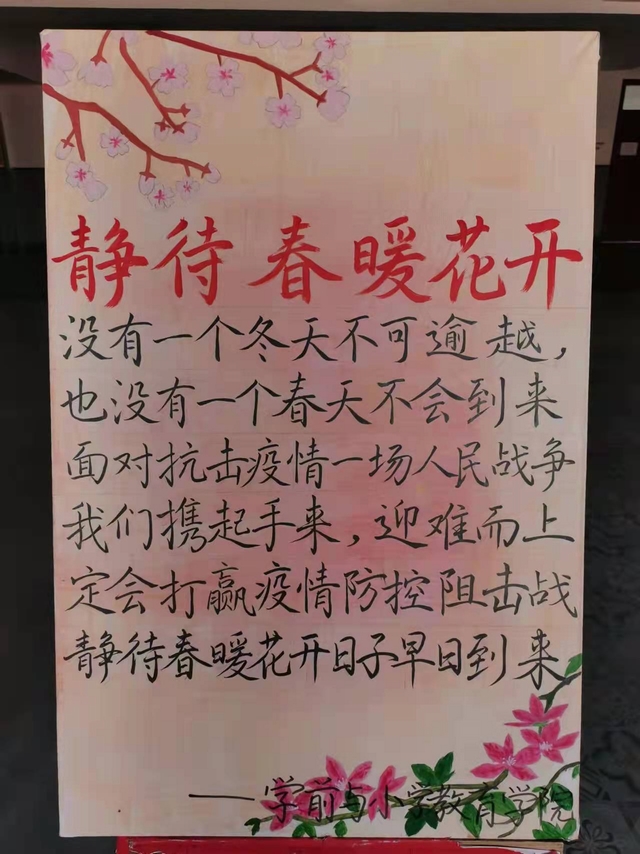 静待春暖花开
没有一个冬天不可逾越，
也没有一个春天不会到来
面对抗击疫情一场人民战争
我们携起手来，迎难而上
定会打赢疫情防控阻击战
静待春暖花开日子早日到来
——学前与小学教育学院